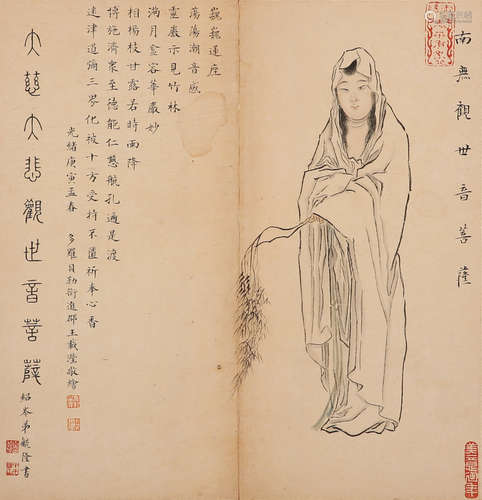 南無觀世音菩薩
巍巍蓮座
蕩蕩潮音感
靈巖示見竹林
滿月容華嚴妙
相楊枝甘露若時雨降
博施濟衆至德能仁慈航孔邇是渡
迷津道彌三界化被十方受持不匱祈奉心香
光緒庚寅孟春 多羅貝勒銜進郡王載瀅敬繪
大慈大悲觀世音菩薩
紹岑弟毓隆書